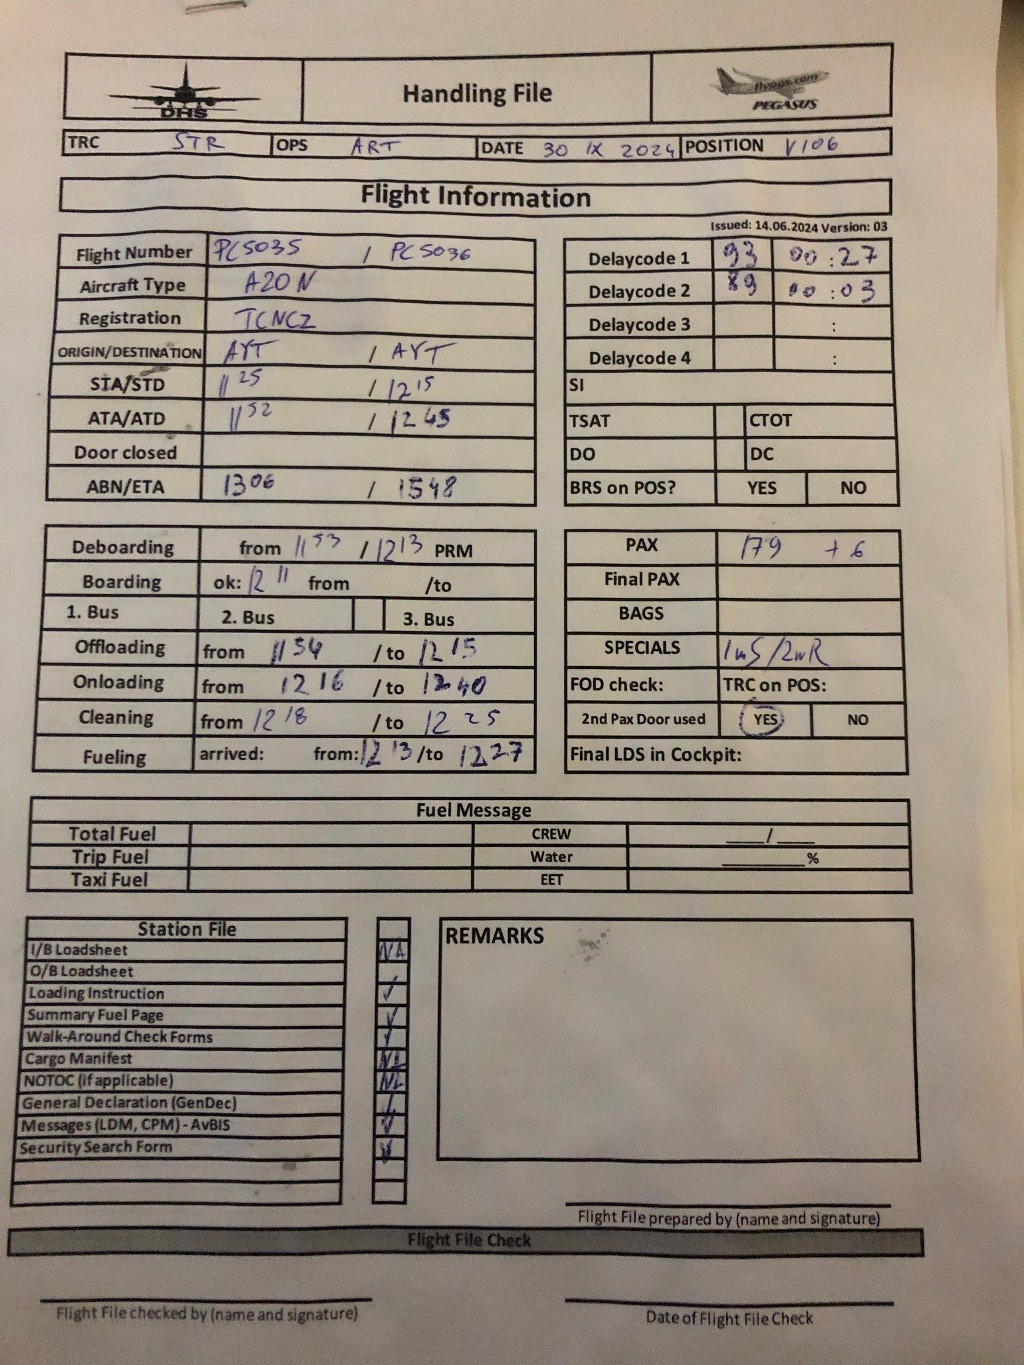 DHS
Handling File
flypgs.com
PEGASUS
TRC STR OPS ART DATE 30 IX 2024 POSITION V106
Flight Information
Issued: 14.06.2024 Version: 03
Flight Number PC5035 / PC5036
Aircraft Type A20N
Registration TCNCZ
ORIGIN/DESTINATION AYT / AYT
STA/STD 1125 / 1215
ATA/ATD 1152 / 1245
Door closed
ABN/ETA 1306 / 1548
Delaycode 1 93 00:27
Delaycode 2 89 00:03
Delaycode 3 :
Delaycode 4 :
SI
TSAT CTOT
DO DC
BRS on POS? YES NO
Deboarding from 1153 / 1213 PRM
Boarding ok: 1211 from /to
1. Bus 2. Bus 3. Bus
Offloading from 1154 / to 1215
Onloading from 1216 / to 1240
Cleaning from 1218 / to 1225
Fueling arrived: from: 1213 /to 1227
PAX 179 + 6
Final PAX
BAGS
SPECIALS 1mS/2wR
FOD check: TRC on POS:
2nd Pax Door used YES NO
Final LDS in Cockpit:
Fuel Message
Total Fuel CREW ___/___
Trip Fuel Water ______%
Taxi Fuel EET
Station File
I/B Loadsheet NA
O/B Loadsheet
Loading Instruction ✓
Summary Fuel Page ✓
Walk-Around Check Forms ✓
Cargo Manifest NL
NOTOC (if applicable) NL
General Declaration (GenDec) ✓
Messages (LDM, CPM) - AvBIS ✓
Security Search Form ✓
REMARKS
Flight File prepared by (name and signature)
Flight File Check
Flight File checked by (name and signature)
Date of Flight File Check